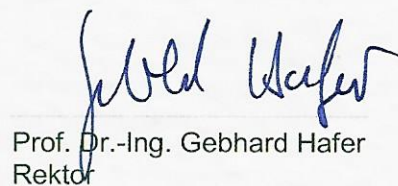 Gebhard Hafer
Prof. Dr.-Ing. Gebhard Hafer
Rektor